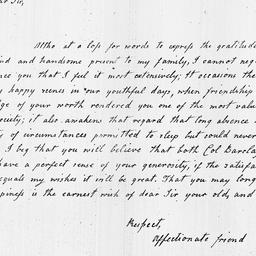 ar Sir,
Altho at a loss for words to express the gratitude
ind and handsome present to my family, I cannot neg
nce you that I feel it most extensively; It occasions the
y happy scenes in our youthful days, when friendship
ge of your worth rendered you one of the most value
ociety; it also awakens that regard that long absence
ty of circumstances promitted to sleep but could never
I beg that you will believe that both Col Barclay
have a perfect sense of your generosity, if the satisfa
equals my wishes it will be great. That you may long
ppiness is the earnest wish of dear Sir your old, and
Respect,
Affectionate friend